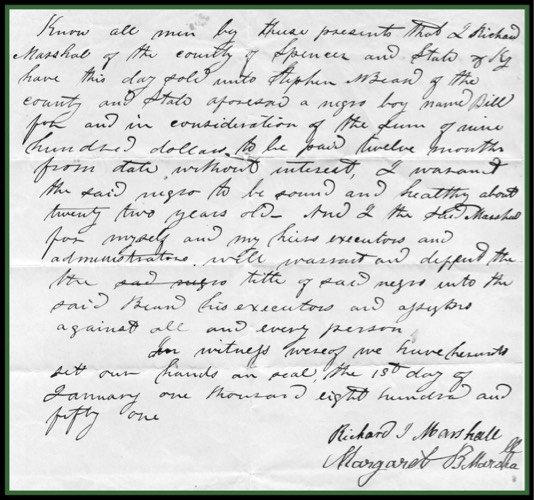 Know all men by these presents that I Richard
Marshal of the county of Spencer and State of Ky
have this day sold unto Stephen McBean of the
county and State aforesad a negro boy name Bill
for and in consideration of the sum of nine
hundred dollars, to be paid twelve months
from date without interest, I warant
the said negro to be sound and healthy about
twenty two years old - And I the said Marshal
for myself and my heirs executors and
administrators will warrant and deffend the
the sad negro title of said negro into the
said Bean his executors and assigns
against all and every person
In witness wereof we have hereunto
set our hands an seal, the 1st day of
January one thousand eight hundred and
fifty one
Richard J Marshall
Margaret B Marshall